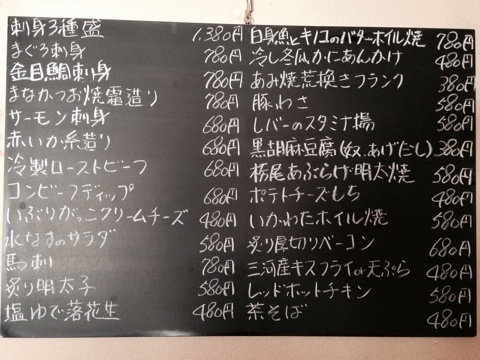 刺身3種盛 1,380円
まぐろ刺身 780円
金目鯛刺身 780円
まなかつお焼霜造り 780円
サーモン刺身 680円
赤いか糸造り 680円
冷製ローストビーフ 680円
コンビーフディップ 680円
いぶりがっこクリームチーズ 480円
水なすのサラダ 580円
馬刺 780円
炙り明太子 580円
塩ゆで落花生 480円
白身魚とキノコのバターホイル焼 780円
冷し冬瓜かにあんかけ 480円
あみ焼荒挽きフランク 380円
豚わさ 580円
レバーのスタミナ揚 580円
黒胡麻豆腐(奴.あげだし) 380円
栃尾あぶらげ明太焼 580円
ポテトチーズもち 480円
いかわたホイル焼 580円
炙り厚切りベーコン 680円
三河産キスフライor天ぷら 480円
レッドホットチキン 580円
茶そば 480円